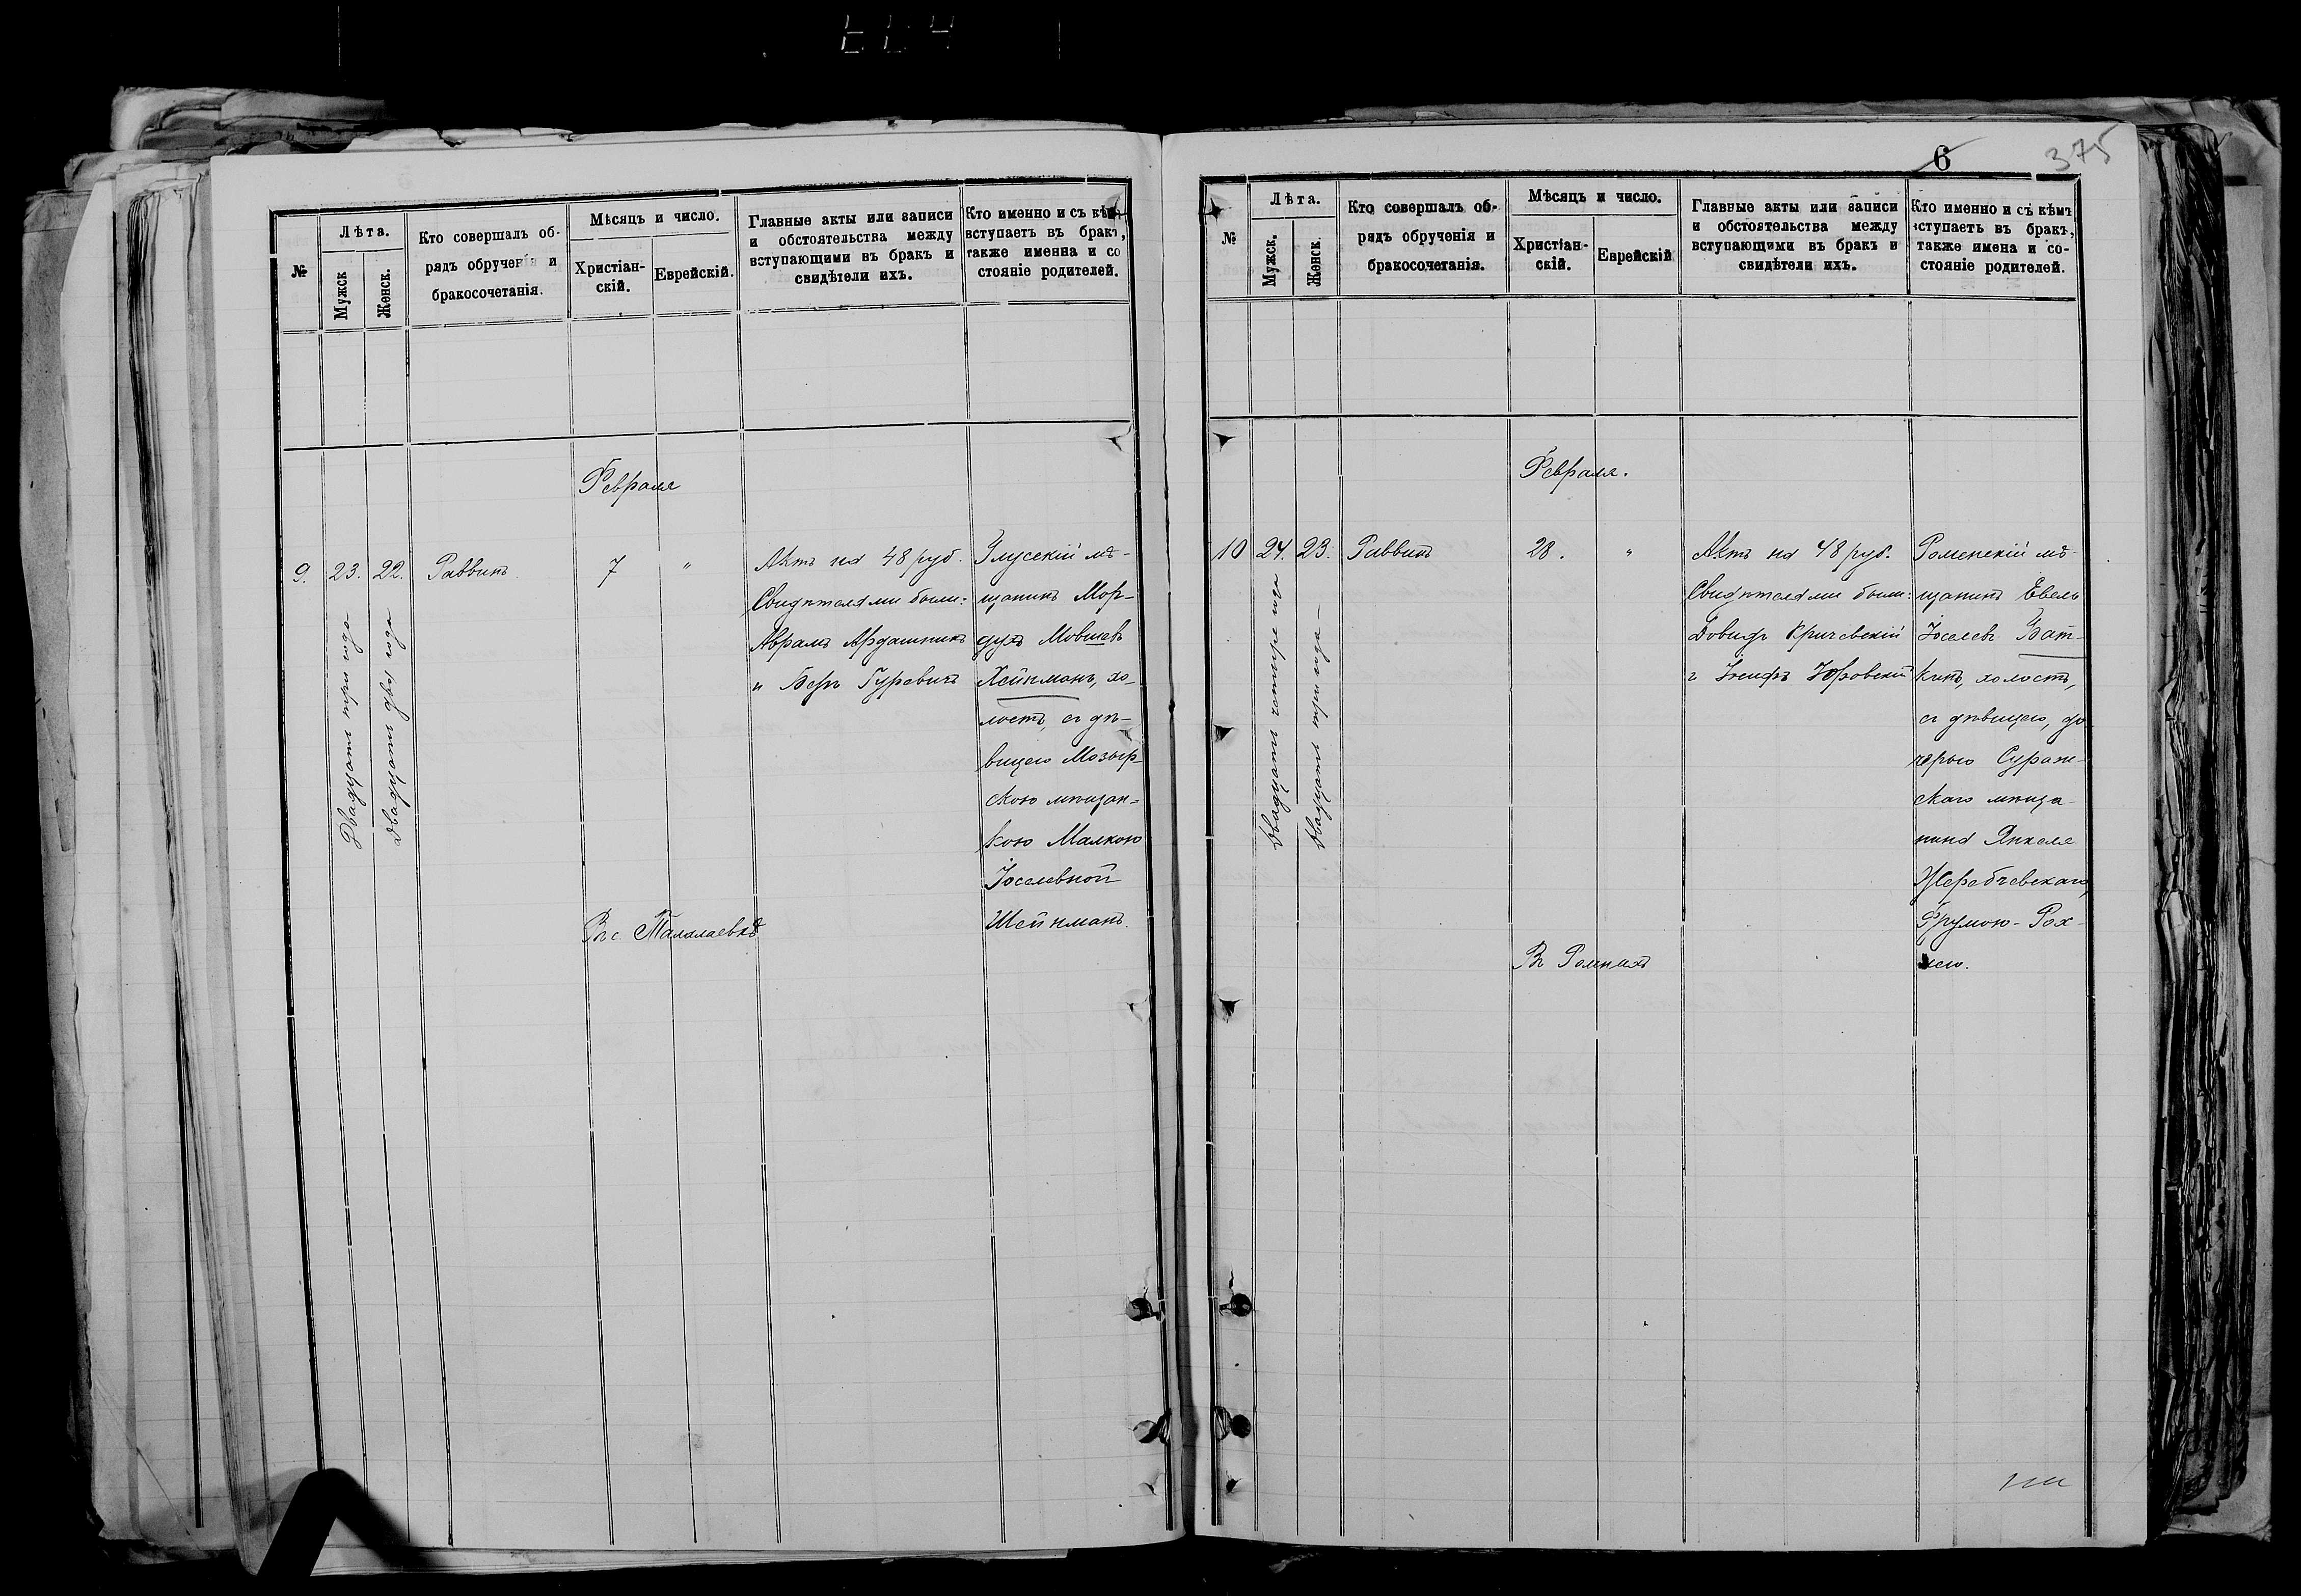 6
375
№
Лѣта.
Мужск
Женск.
Кто совершалъ об-
рядъ обрученія и
бракосочетанія.
Мѣсяцъ и число.
Христіан-
скій.
Еврейскій.
Главные акты или записи
и обстоятельства между
вступающими въ бракъ и
свидѣтели ихъ.
Кто именно и съ кѣмъ
вступаетъ въ бракъ,
также именна и со
стояніе родителей.
Февраля
9. 23. 22. Раввинъ 7 "
Двадцать три года
Двадцать два года
Актъ на 48 руб.
Свидѣтелями были:
Аврамъ Ардашникъ
и Беръ Гуревичъ
Глусскій мѣ-
щанинъ Мор-
духъ Мовшевъ
Хейкманъ, хо-
лостъ, съ дѣ-
вицею Мозыр-
скою мѣщан-
кою Малкою
Іоселевной
Шейкманъ.
Въ с. Талалаевкѣ
№
Лѣта.
Мужск.
Женск.
Кто совершалъ об-
рядъ обрученія и
бракосочетанія.
Мѣсяцъ и число.
Христіан-
скій.
Еврейскій
Главные акты или записи
и обстоятельства между
вступающими въ бракъ и
свидѣтели ихъ.
Кто именно и съ кѣмъ
вступаетъ въ бракъ,
также имена и со-
стояніе родителей.
Февраля.
10 24. 23. Раввинъ 28. "
Двадцать четыре года
Двадцать три года —
Актъ на 48 руб.
Свидѣтелями были:
Довидъ Кричевскій
и Іосифъ Юровскій
Роменскій мѣ-
щанинъ Евель
Іоселевъ Ват-
кинъ, холостъ,
съ дѣвицею, до
черью Сураж-
скаго мѣща-
нина Янкеля
Жеребчевскаго,
Фрумою-Рох-
лею.
Въ Ромнахъ